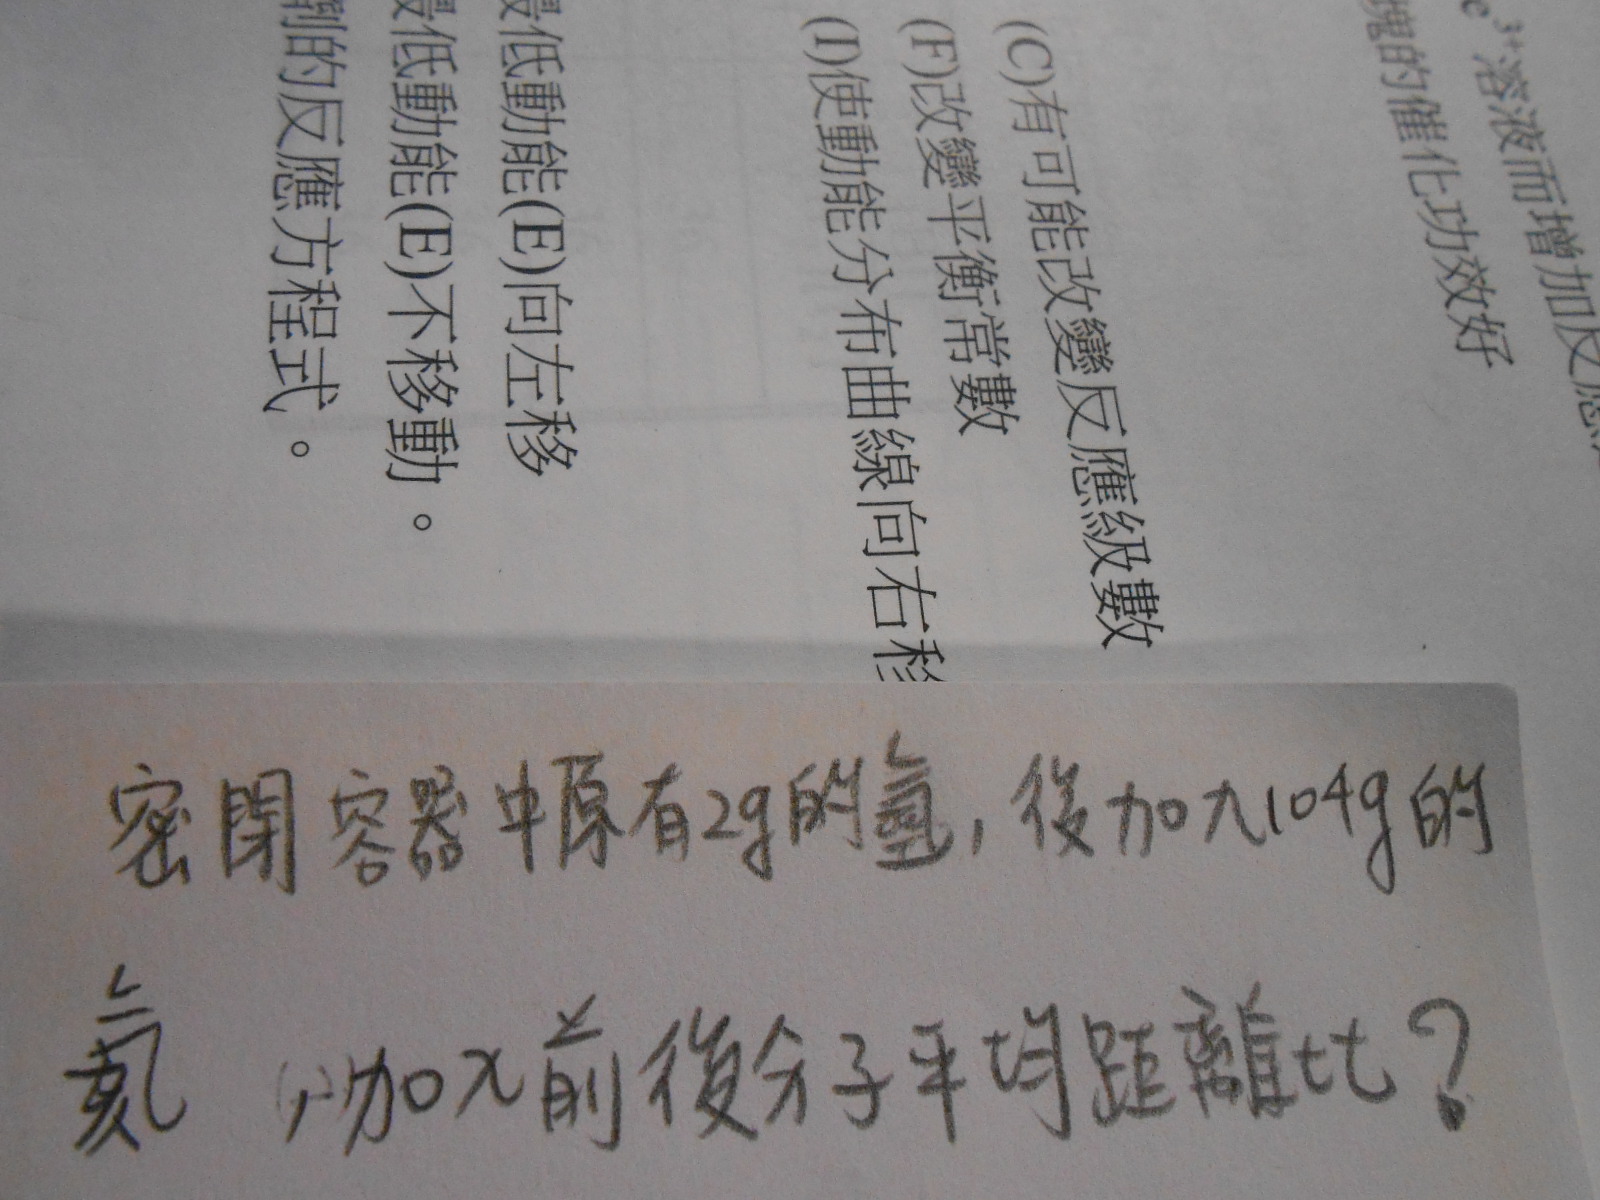 e³⁺溶液而增加反應
塊的催化功效好
(C)有可能改變反應級數
(F)改變平衡常數
(I)使動能分布曲線向右移
最低動能(E)向左移
最低動能(E)不移動。
的反應方程式。
密閉容器中原有2g的氫,後加入104g的
氦 (1)加入前後分子平均距離比?